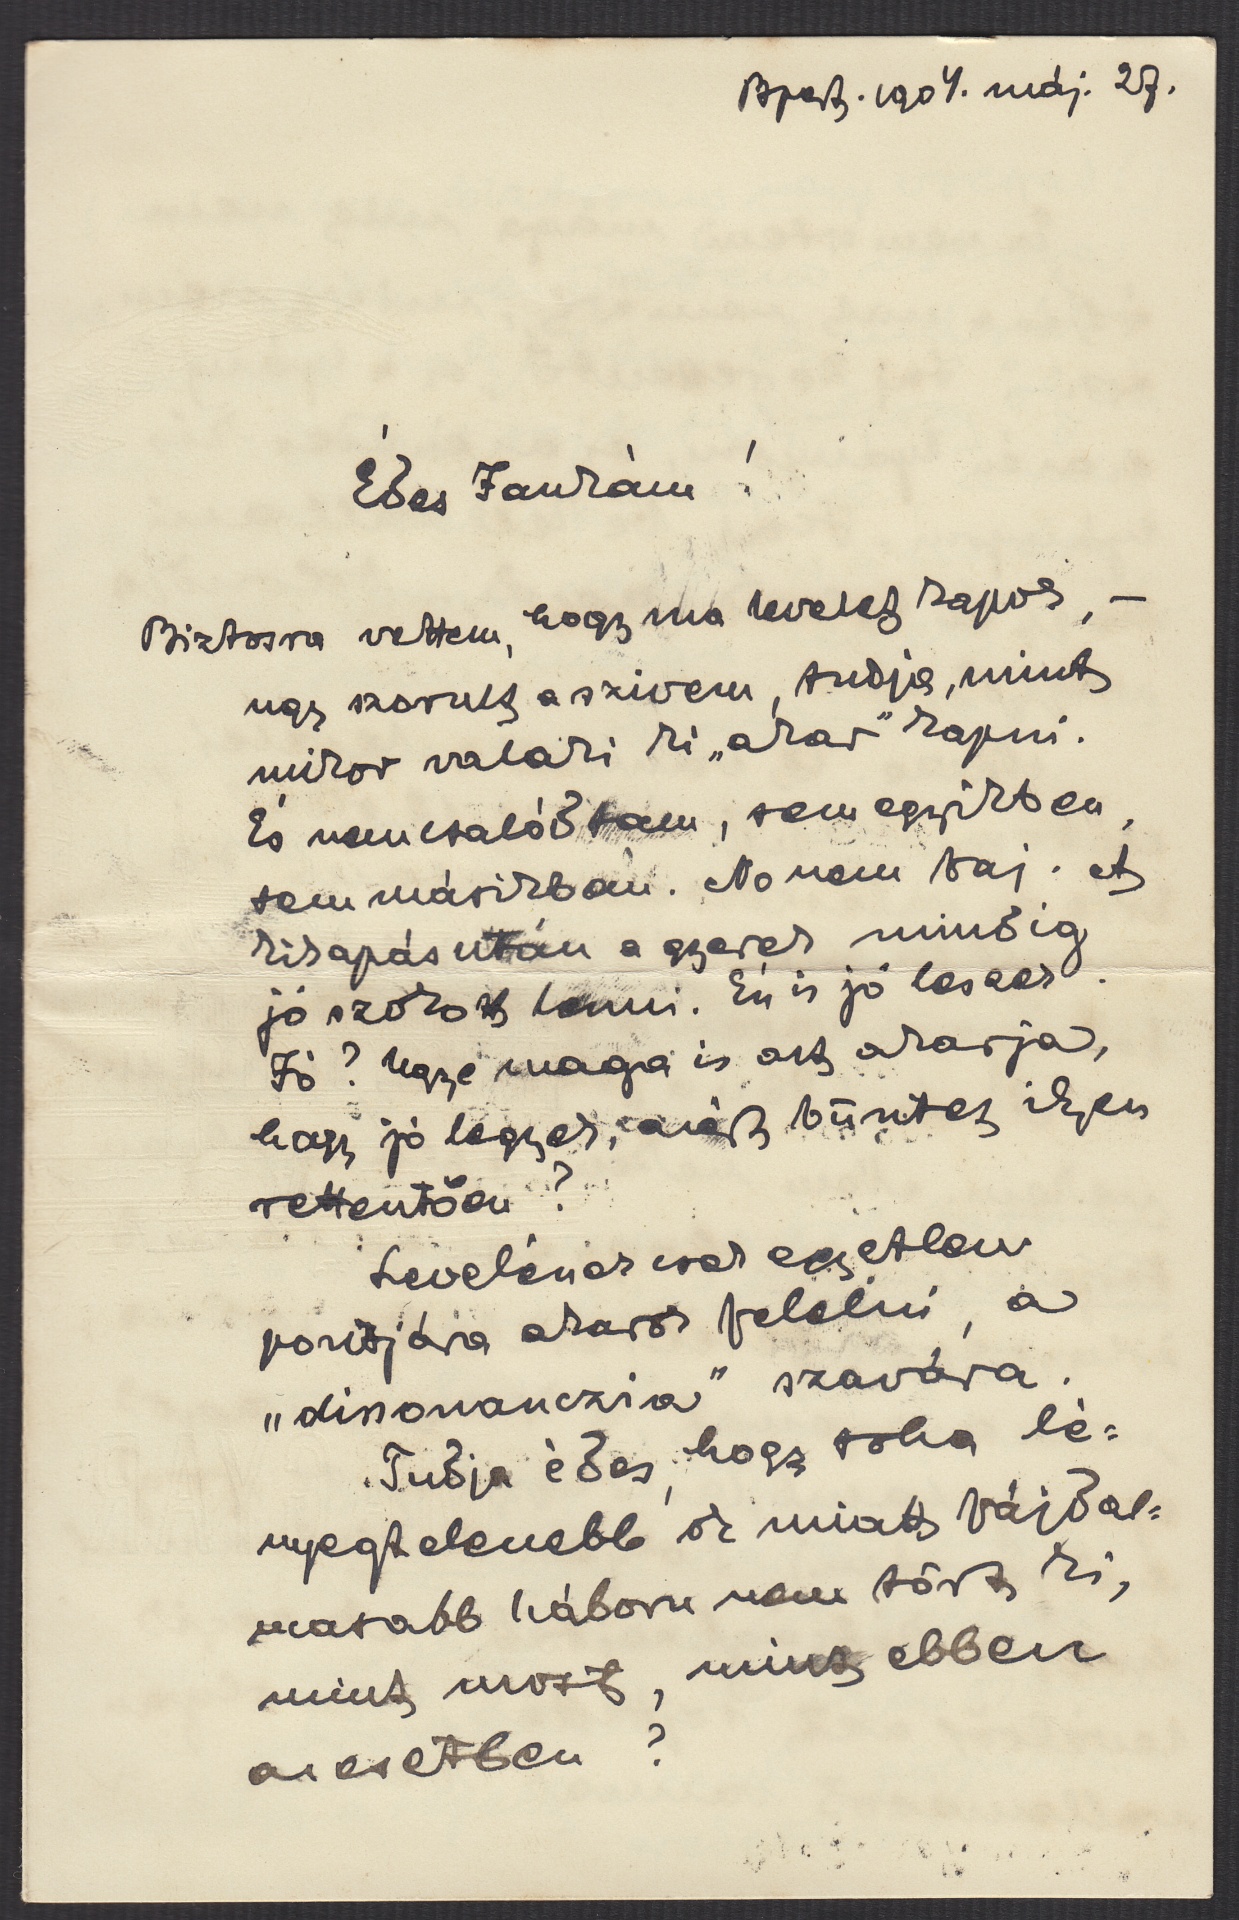 Bpest. 1904. máj. 27.
Édes Fankám!
Biztosra vettem, hogy ma levelet kapok, –
ugy szorult a szivem, tudja, mint
mikor valaki ki „akar” kapni.
És nem csalódtam, sem egyikben,
sem másikban. No nem baj. A
kikapás után a gyerek mindig
jó szokott lenni. Én is jó leszek.
Jó? Ugye maga is azt akarja,
hogy jó legyek, azért büntet ilyen
rettentően?
Levelének csak egyetlen
pontjára akarok felelni, a
„dissonanczia” szavára.
Tudja édes, hogy soha lé=
nyegtelenebb ok miatt fájdal=
masabb háboru nem tört ki,
mint most, mint ebben
az esetben?